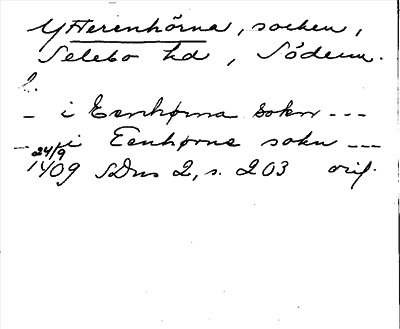 Ytterenhörna, socken,
Selebo hd, Söderm.
l.
– i Eenhørna sokn ---
– i Eenhørne sokn ---
24/9
1409 SDns 2, s. 203 orig.